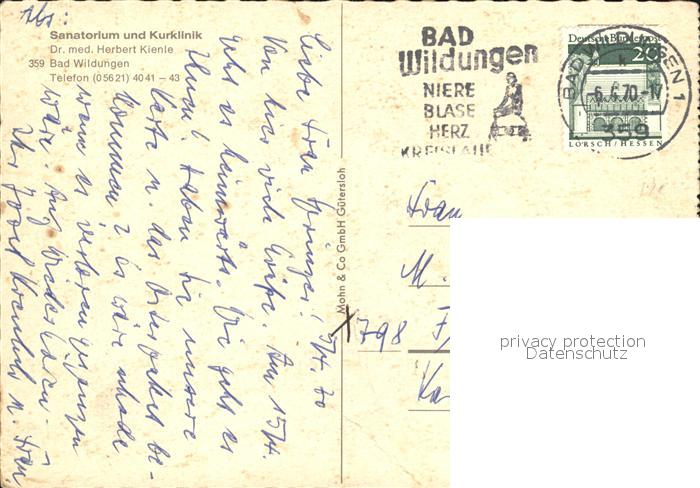 Abs:
Sanatorium und Kurklinik
Dr. med. Herbert Kienle
359 Bad Wildungen
Telefon (05621) 4041 – 43
5/4. 70
Liebe Frau
Von hier viele Grüße. Am 15/4.
geht es heimwärts. Wie geht es
Ihnen? Haben Sie unsere
Karte u. das Osterpaket be-
kommen? Es wäre schade
wenn es verloren gegangen
wäre. Auf Wiedersehen –
Ihr Josef u. Frau
Mohn & Co GmbH Gütersloh
BAD
Wildungen
NIERE
BLASE
HERZ
KREISLAUF
Deutsche Bundespost
20
LORSCH/HESSEN
BAD WILDUNGEN 1
-6.6.70.-17
359
Frau
M.
798
Ka
privacy protection
Datenschutz